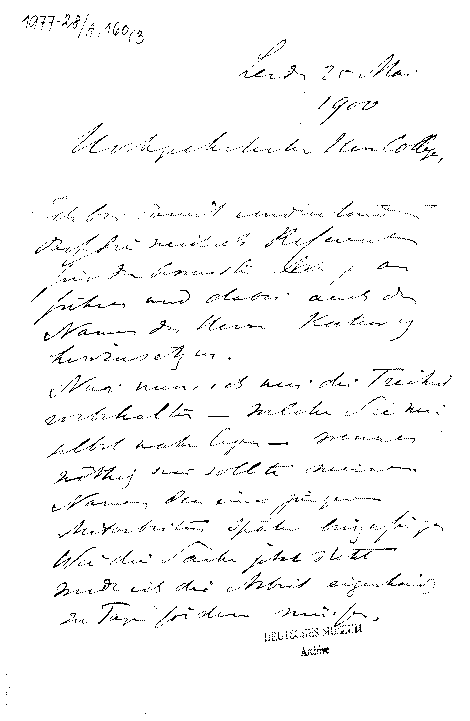 1977-28/A,160/3
25 Mai
1900
Hochgeehrter Herr College,
Ich bin damit einverstanden
dass Sie mich als Referenten
für die
führen und dabei auch den
Namen des Herrn
hinzusetzen.
Nur muss ich mir die Freiheit
vorbehalten – welche Sie mir
selbst nahe legen – wenn es
nöthig sein sollte meinem
Namen den eines jüngeren
Mitarbeiters später beizufügen
Wie die Sache jetzt steht
werde ich die Arbeit eigenhändig
zu Tage fördern müssen.
DEUTSCHES MUSEUM
Archive